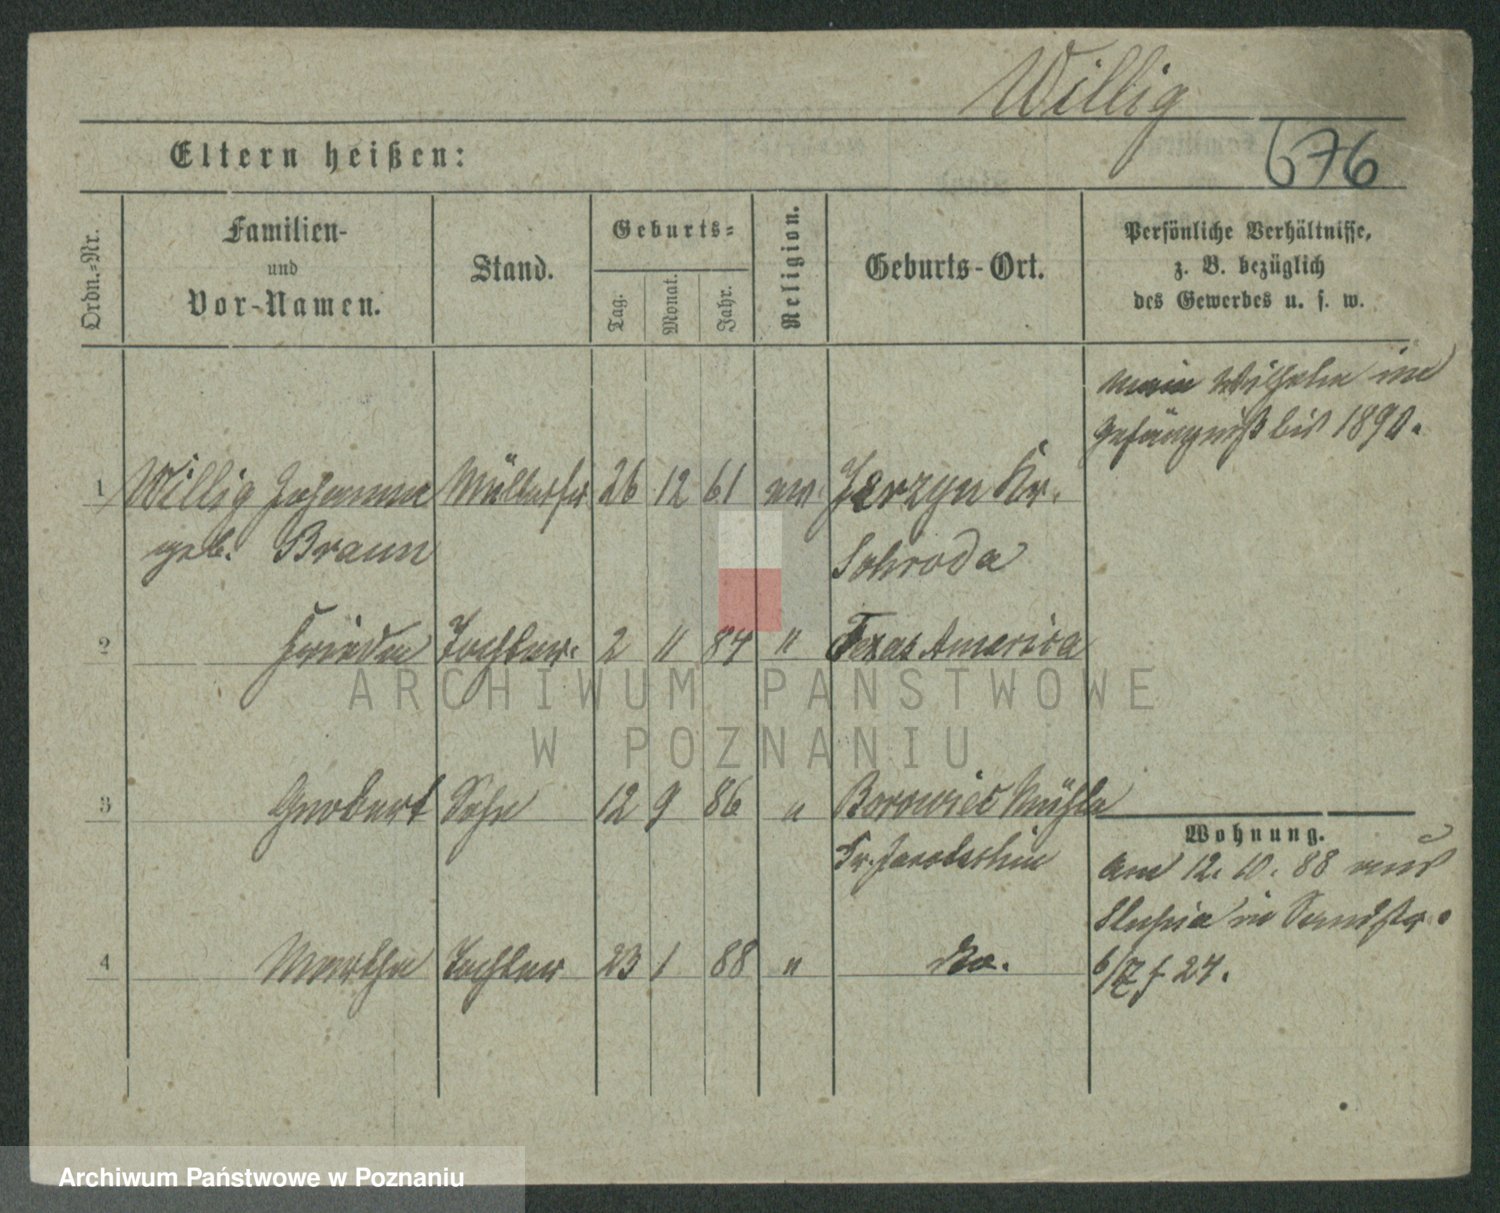 Willig
676
Eltern heißen:
Ordn.-Nr.
Familien-
und
Vor-Namen.
Stand.
Geburts-
Tag.
Monat.
Jahr.
Religion.
Geburts-Ort.
Persönliche Verhältnisse,
z. B. bezüglich
des Gewerbes u. s. w.
Wilhelm im
Gefängniß bis 1890.
1 Willig Johanna Müllerfr. 26 12 61 ev. Jerzyn Kr.
geb. Braun Schroda
2 Frieda Tochter. 2 11 84 " Texas America
3 Sohn 12 9 86 " Borowiec Mühle
Kr.
4 Martha Tochter 23 1 88 " do.
Wohnung.
Am 12. 10. 88 aus
Slupia in Sandstr.
6/7 f 24.
ARCHIWUM PAŃSTWOWE
W POZNANIU
Archiwum Państwowe w Poznaniu